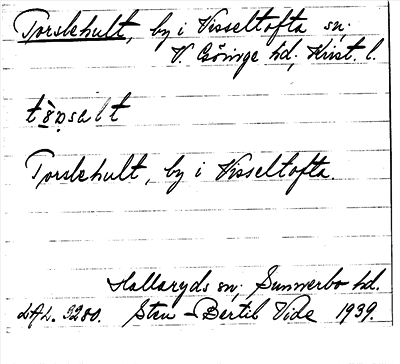 Torsbehult, by i Visseltofta sn;
V. Göinge hd; Krist. l.
Torsbehult, by i Visseltofta.
Hallaryds sn; Sunnerbo hd.
LAL. 3280. Sten-Bertil Vide 1939.